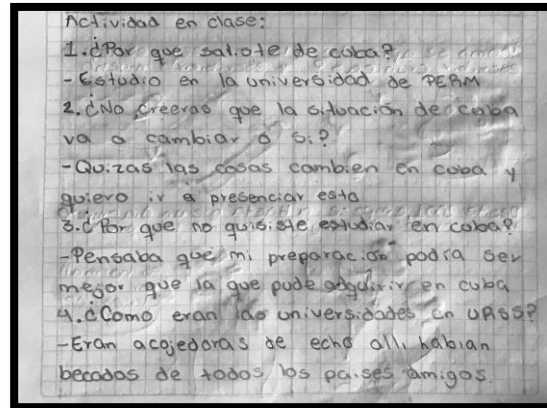 Actividad en clase:
1. ¿Por que saliote de cuba?
- Estudio en la universidad de PERM
2. ¿No creeras que la situación de cuba
va a cambiar o si?
- Quizas las cosas cambien en cuba y
quiero ir a presenciar esto
3. ¿Por que no quisiste estudiar en cuba?
- Pensaba que mi preparación podía ser
mejor que la que pude adquirir en cuba
4. ¿Como eran las universidades en URSS?
- Eran acojedoras de echo alli habian
becados de todos los paises amigos.